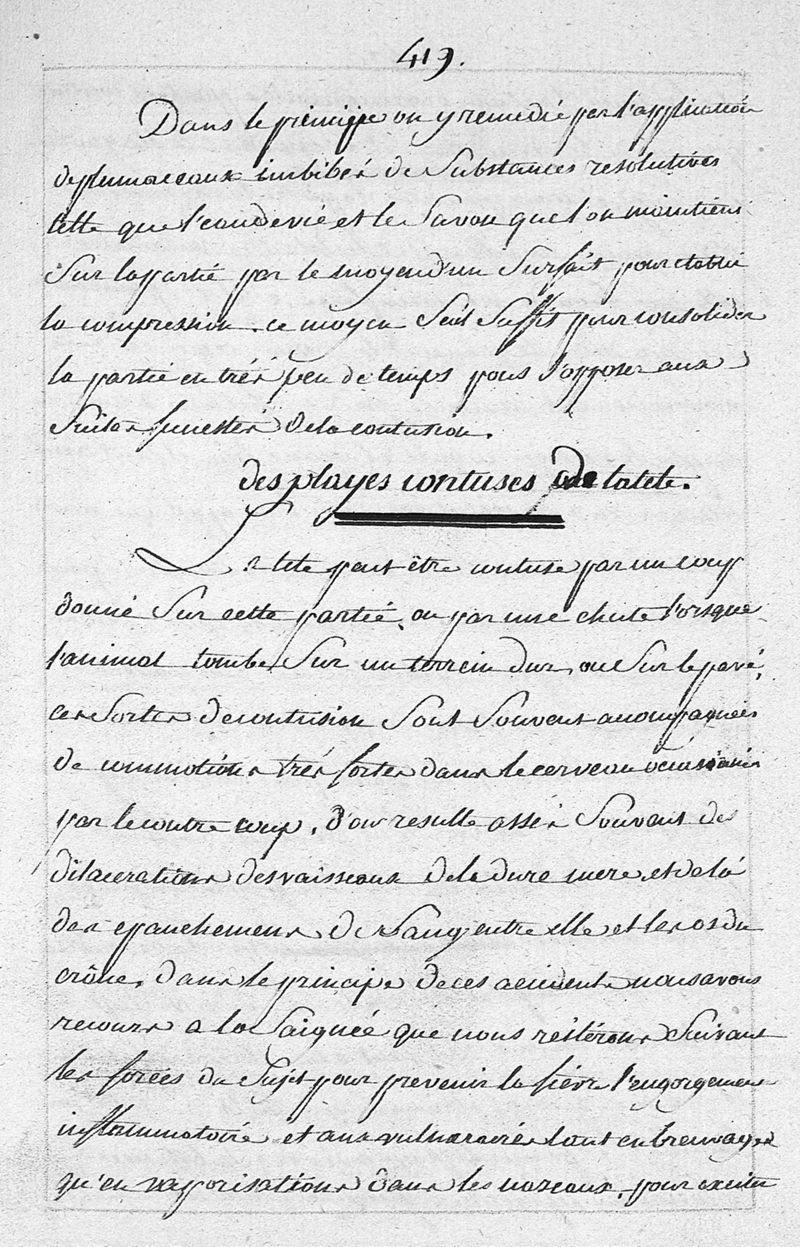 419.
Dans le principe on y remedie par l'application
de plumaceaux imbibés de Substances resolutives
telle que l'eau de vie et le Savon que l'on maintiens
Sur la partie par le moyen d'un Surfait pour etablir
la compression. ce moyen Seul Suffit pour consolider
la partie en très peu de temps pous S'opposer aux
Suites funestes de la contusion.
des playes contuses de la tete.
La tete peut être contuse par un coup
donné Sur cette partie, ou par une chute lorsque
l'animal tombe Sur un terrein dur, ou Sur le pavé,
ces Sortes de contusion Sont Souvent acompagnées
de commotions très fortes dans le cerveau
par le contre coup, d'ou resulte assés Souvent des
dilacerations des vaisseaux de la dure mere, et de là
des epanchemens de Sang entre elle et les os du
crâne, dans le principe de ces accidents nous avons
recours a la Saignée que nous reïterons Suivant
les forces du Sujet pour prevenir la fièvre l'engorgement
inflammatoire et aux vulneraires tant en breuvages
qu'en vaporisations dans les nazeaux, pour exciter